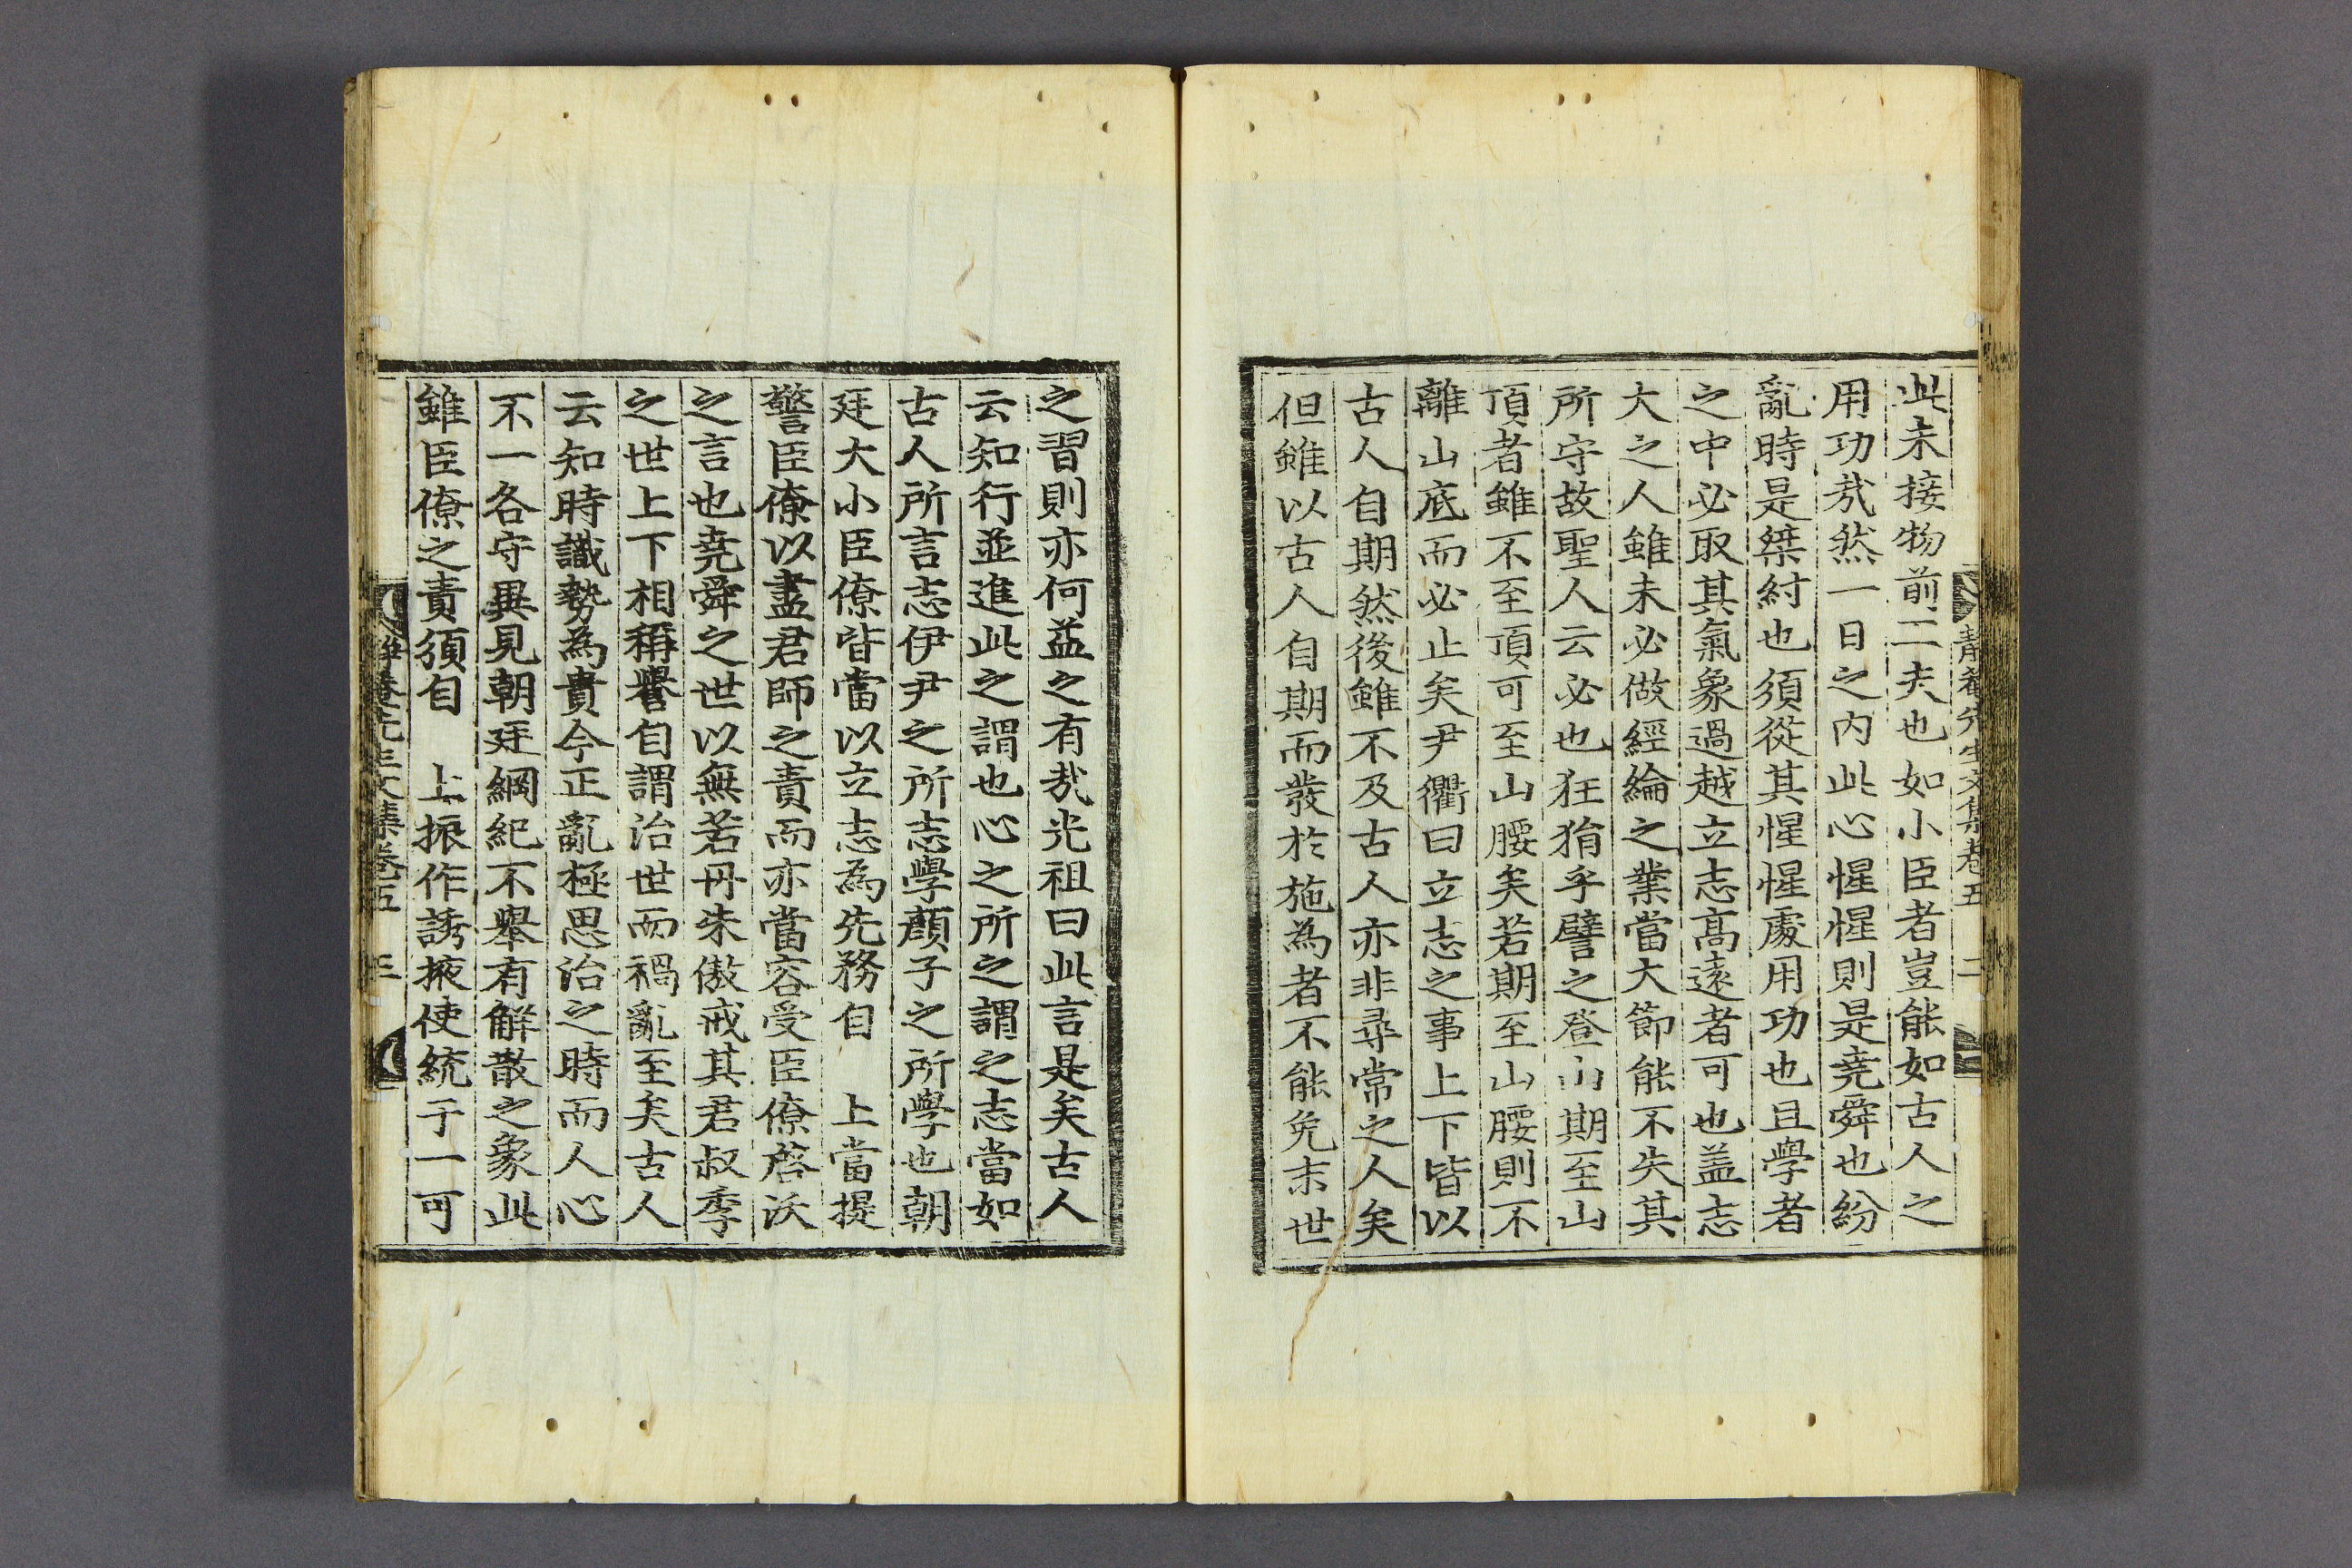 此未接物前工夫也如小臣者豈能如古人之
用功哉然一日之內此心惺惺則是堯舜也紛
亂時是桀紂也須從其惺惺處用功也且學者
之中必取其氣象過越立志高遠者可也盖志
大之人雖未必做經綸之業當大節能不失其
所守故聖人云必也狂狷乎譬之登山期至山
頂者雖不至頂可至山腰矣若期至山腰則不
離山底而必止矣尹衢曰立志之事上下皆以
古人自期然後雖不及古人亦非尋常之人矣
但雖以古人自期而發於施為者不能免末世
靜菴先生文集卷五 二
之習則亦何益之有哉光祖曰此言是矣古人
云知行並進此之謂也心之所之謂之志當如
古人所言志伊尹之所志學顏子之所學也朝
廷大小臣僚皆當以立志為先務自 上當提
警臣僚以盡君師之責而亦當容受臣僚啓沃
之言也堯舜之世以無若丹朱傲戒其君叔季
之世上下相稱譽自謂治世而禍亂至矣古人
云知時識勢為貴今正亂極思治之時而人心
不一各守異見朝廷綱紀不擧有解散之象此
雖臣僚之責須自 上振作誘掖使統于一可
靜菴先生文集卷五 三